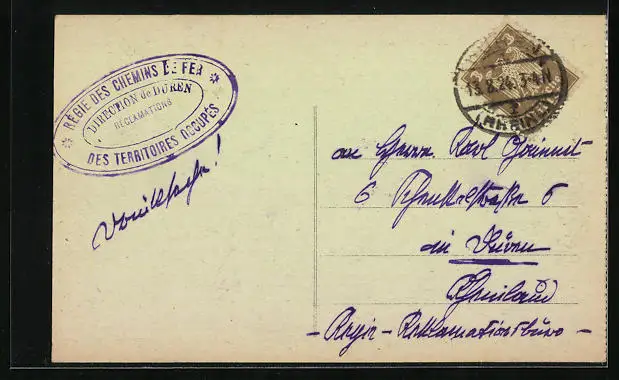 RÉGIE DES CHEMINS DE FER
DIRECTION de DÜREN
RÉCLAMATIONS
DES TERRITOIRES OCCUPÉS
3 3
13.8.24. 3-4 N
(RHEINL)
an Herrn Karl
6 6
in Düren
Rheinland
- Regie - Reklamationsbüro -